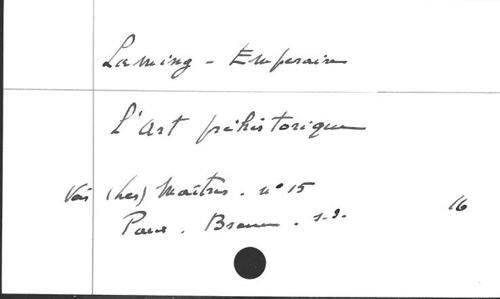 Laming - Emperaire
L'art préhistorique
Voir (Les) Maîtres. n° 15
Paris. Braun. s.d.
16